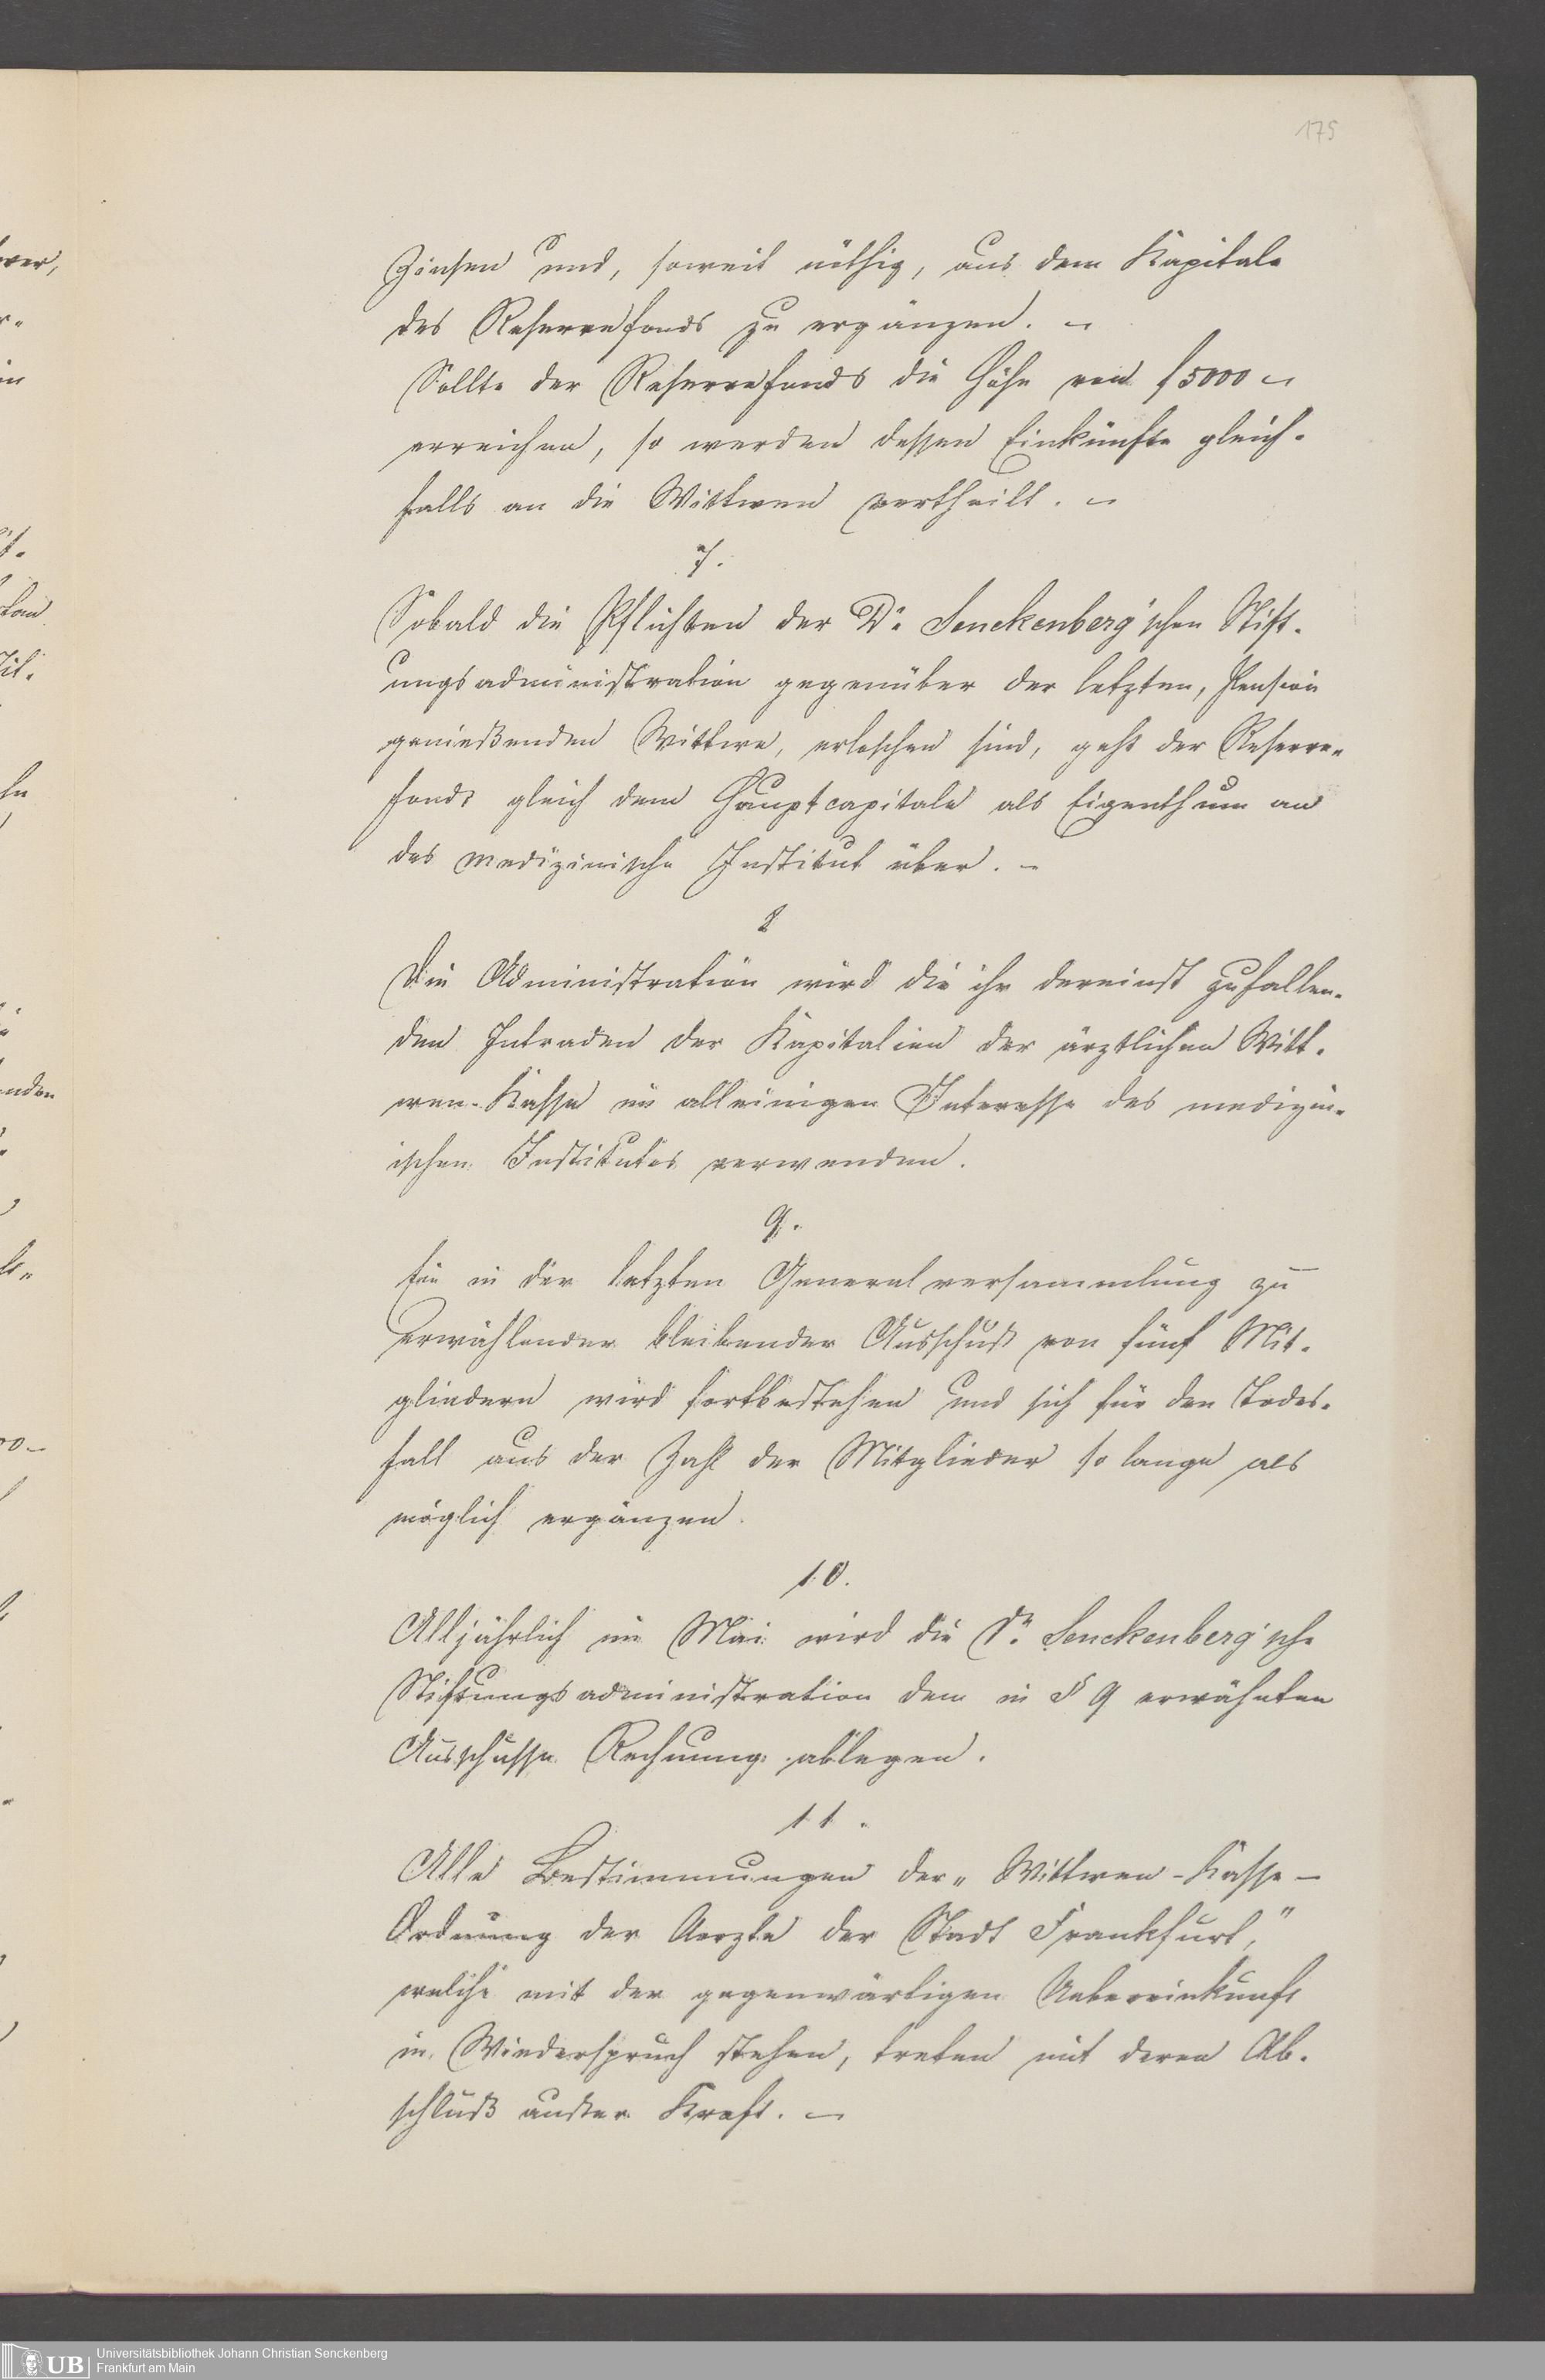 175
Zinsen und, soweit nöthig, aus dem Kapitale
des Reservefonds zu ergänzen. –
Sollte der Reservefonds die Höhe von f 5000 –
erreichen, so werden dessen Einkünfte gleich-
falls an die Wittwen vertheilt. –
7.
Sobald die Pflichten der Dr. Senckenberg'schen Stift-
ungsadministration gegenüber der letzten, Pension
genießenden Wittwe, erloschen sind, geht der Reserve-
fonds gleich dem Hauptcapitale als Eigenthum an
das medizinische Institut über. –
8
Die Administration wird die ihr dereinst zufallen-
den Intraden der Kapitalien der ärztlichen Witt-
wen-Kasse im alleinigen Interesse des medizin-
ischen Institutes verwenden.
9.
Ein in der letzten Generalversammlung zu
erwählender bleibender Ausschuß von fünf Mit-
gliedern wird fortbestehen und sich für den Todes-
fall aus der Zahl der Mitglieder so lange als
möglich ergänzen.
10.
Alljährlich im Mai wird die Dr. Senckenberg'sche
Stiftungsadministration dem in § 9 erwähnten
Ausschusse Rechnung ablegen.
11.
Alle Bestimmungen der „Wittwen-Kasse-
Ordnung der Aerzte der Stadt Frankfurt,"
welche mit der gegenwärtigen Uebereinkunft
in Wiederspruch stehen, treten mit deren Ab-
schluß außer Kraft. –
UB
Universitätsbibliothek Johann Christian Senckenberg
Frankfurt am Main